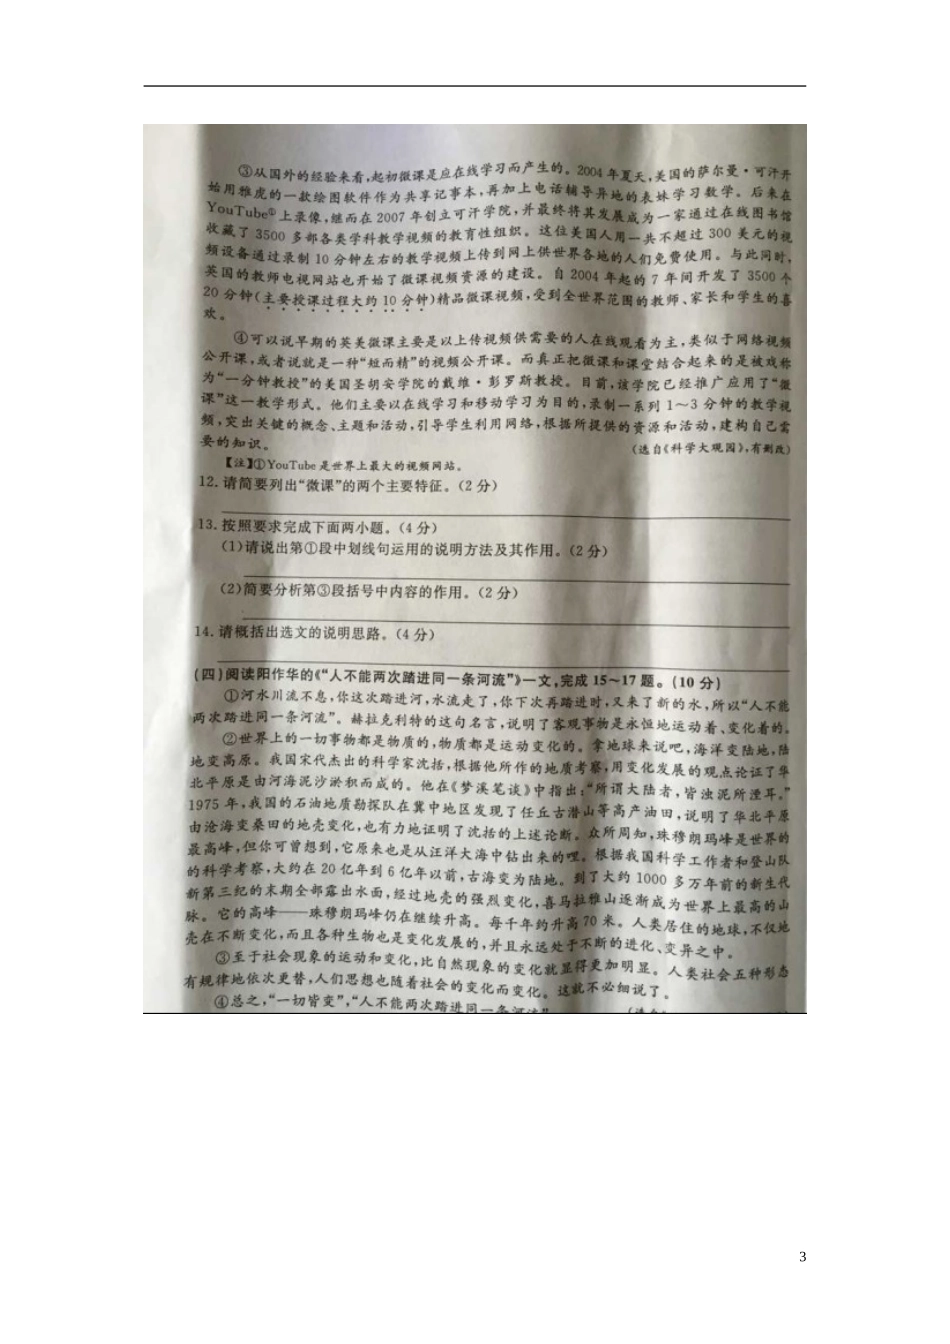 ③从国外的经验来看,起初微课是应在线学习而产生的。2004年夏天,美国的萨尔曼·可汗开
始用雅虎的一款绘图软件作为共享记事本,再加上电话辅导异地的表妹学习数学。后来在
YouTube①上录像,继而在2007年创立可汗学院,并最终将其发展成为一家通过在线图书馆
收藏了3500多部各类学科教学视频的教育性组织。这位美国人用一共不超过300美元的视
频设备通过录制10分钟左右的教学视频上传到网上供世界各地的人们免费使用。与此同时,
英国的教师电视网站也开始了微课视频资源的建设。自2004年起的7年间开发了3500个
20分钟(主要授课过程大约10分钟)精品微课视频,受到全世界范围的教师、家长和学生的喜
欢。
④可以说早期的英美微课主要是以上传视频供需要的人在线观看为主,类似于网络视频
公开课,或者说就是一种“短而精”的视频公开课。而真正把微课和课堂结合起来的是被戏称
为“一分钟教授”的美国圣胡安学院的戴维·彭罗斯教授。目前,该学院已经推广应用了“微
课”这一教学形式。他们主要以在线学习和移动学习为目的,录制一系列1～3分钟的教学视
频,突出关键的概念、主题和活动,引导学生利用网络,根据所提供的资源和活动,建构自己需
要的知识。 (选自《科学大观园》,有删改)
【注】①YouTube是世界上最大的视频网站。
12.请简要列出“微课”的两个主要特征。(2分)
13.按照要求完成下面两小题。(4分)
(1)请说出第①段中划线句运用的说明方法及其作用。(2分)
(2)简要分析第③段括号中内容的作用。(2分)
14.请概括出选文的说明思路。(4分)
(四)阅读阳作华的《“人不能两次踏进同一条河流”》一文,完成15~17题。(10分)
①河水川流不息,你这次踏进河,水流走了,你下次再踏进时,又来了新的水,所以“人不能
两次踏进同一条河流”。赫拉克利特的这句名言,说明了客观事物是永恒地运动着、变化着的。
②世界上的一切事物都是物质的,物质都是运动变化的。拿地球来说吧,海洋变陆地,陆
地变高原。我国宋代杰出的科学家沈括,根据他所作的地质考察,用变化发展的观点论证了华
北平原是由河海泥沙淤积而成的。他在《梦溪笔谈》中指出:“所谓大陆者,皆浊泥所湮耳。”
1975年,我国的石油地质勘探队在冀中地区发现了任丘古潜山等高产油田,说明了华北平原
由沧海变桑田的地壳变化,也有力地证明了沈括的上述论断。众所周知,珠穆朗玛峰是世界的
最高峰,但你可曾想到,它原来也是从汪洋大海中钻出来的哩。根据我国科学工作者和登山队
的科学考察,大约在20亿年到6亿年以前,古海变为陆地。到了大约1000多万年前的新生代
新第三纪的末期全部露出水面,经过地壳的强烈变化,喜马拉雅山逐渐成为世界上最高的山
脉。它的高峰——珠穆朗玛峰仍在继续升高。每千年约升高70米。人类居住的地球,不仅地
壳在不断变化,而且各种生物也是变化发展的,并且永远处于不断的进化、变异之中。
③至于社会现象的运动和变化,比自然现象的变化就显得更加明显。人类社会五种形态
有规律地依次更替,人们思想也随着社会的变化而变化。这就不必细说了。
④总之,“一切皆变”,“人不能两次踏进同一条河流”
3